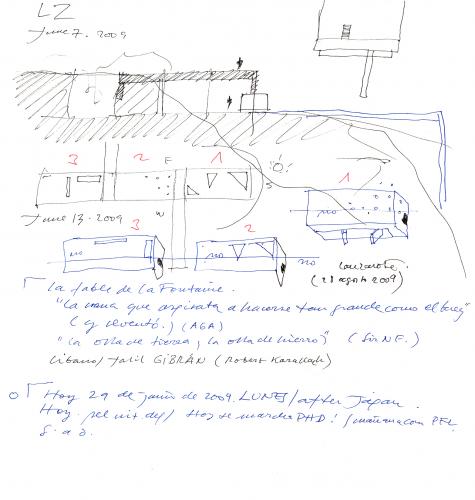 LZ
June 7. 2009
3 2 E 1
"O"
S
1
W
June 13. 2009
3
2
no
no
no
no
Lanzarote.
(28 agosto 2009)
La fable de La Fontaine.
"La rana que aspirata a hacerse tan grande como el buey"
(y reventó.) (AGA)
"La olla de tierra, la olla de hierro" (Sir NF.)
Líbano/ Jalil GIBRÁN (Robert Karallagh)
Hoy 29 de junio de 2009. LUNES/after Japan.
Hoy Hoy se marcha PHD! / mañana con PFL
S. a d.